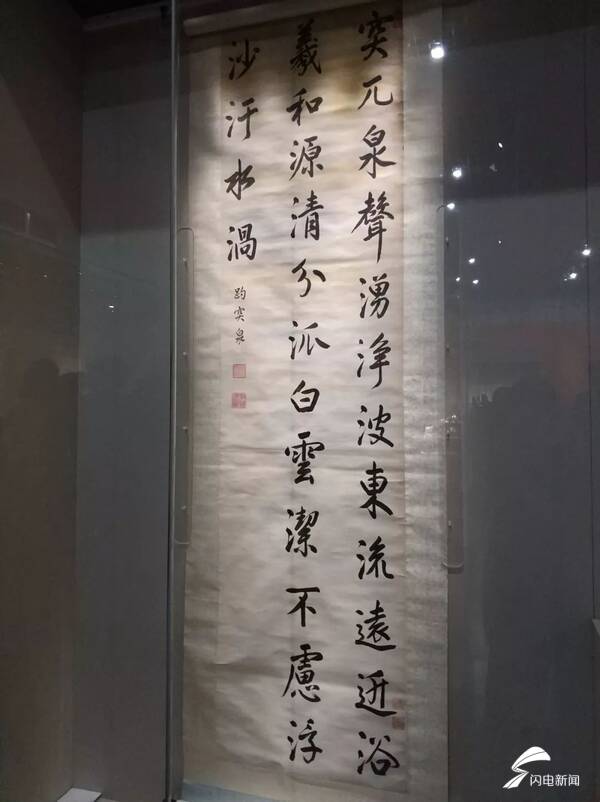 突兀泉聲湧淨波東流遠近浴
羲和源清分派白雲潔不慮浮
沙汙水渦
趵突泉
闪电新闻